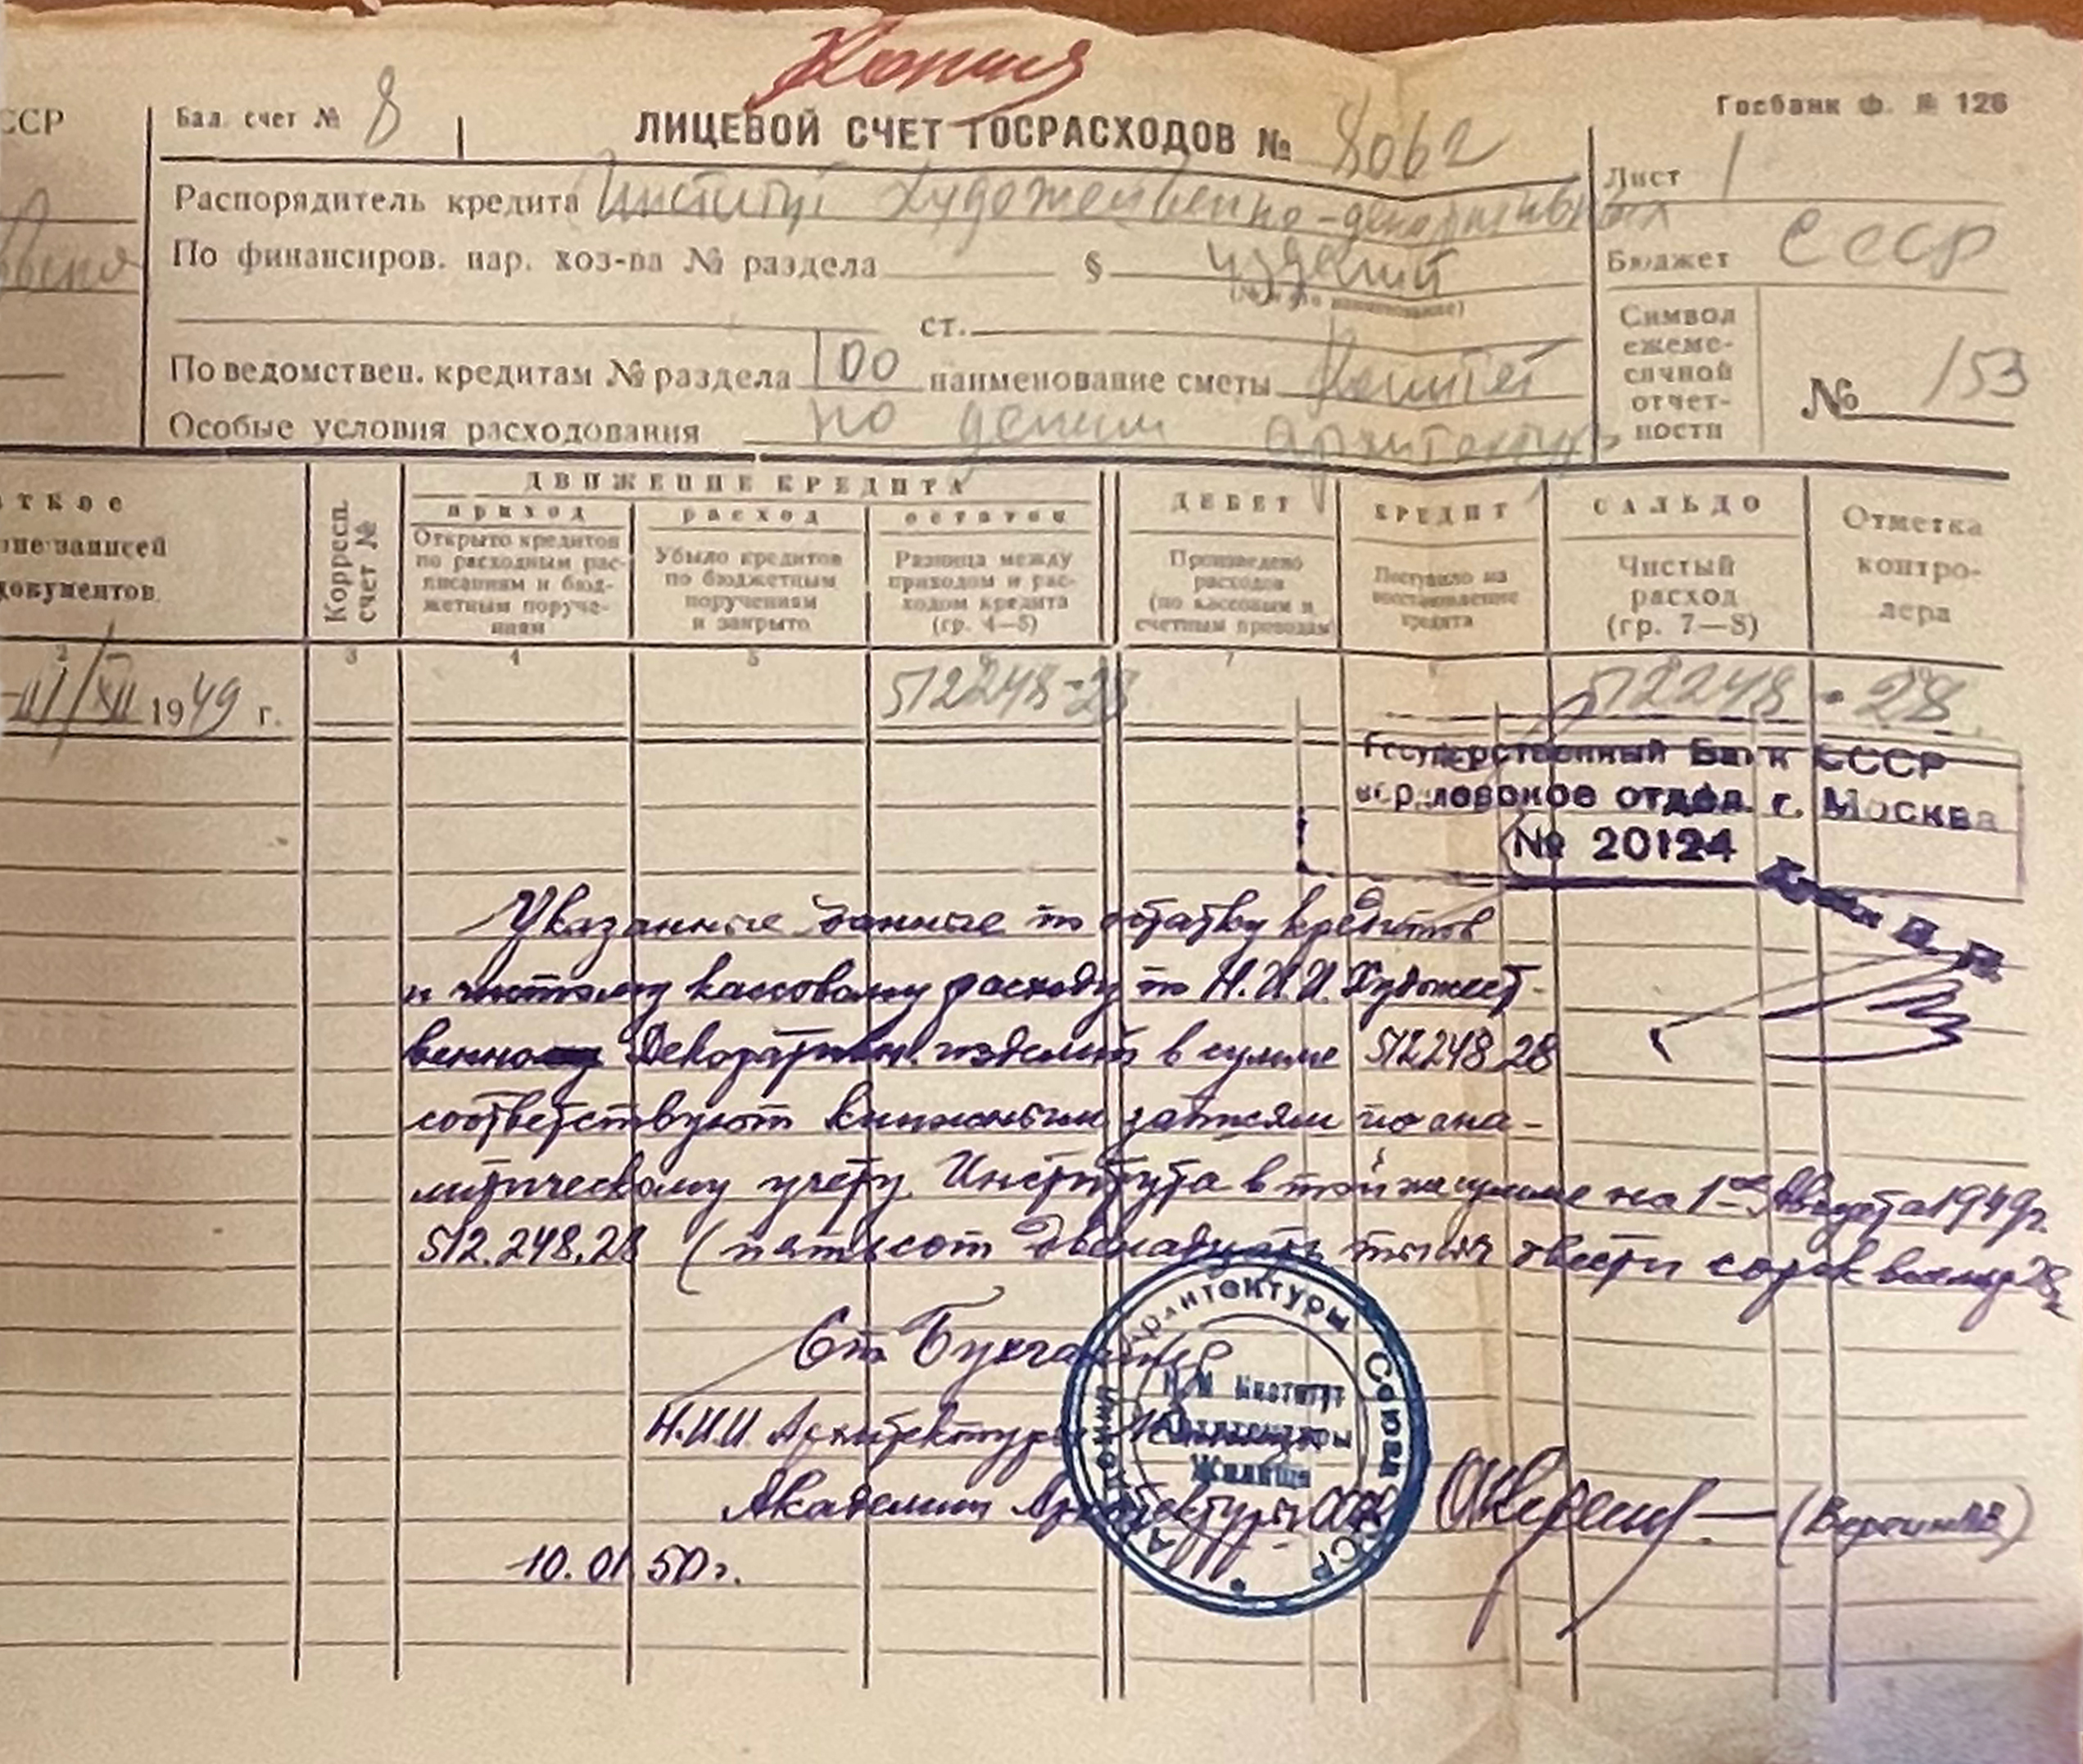 Копия
ССР
Бал. счет № 8
ЛИЦЕВОЙ СЧЕТ ГОСРАСХОДОВ № 8062
Госбанк ф. № 126
Лист 1
Распорядитель кредита Институт художественно-декоративных
По финансиров. нар. хоз-ва № раздела § изделий
Бюджет СССР
ст.
По ведомствен. кредитам № раздела 100 наименование сметы Комитет
Особые условия расходования по делам архитектуры
Символ
ежеме-
сячной
отчет-
ности
№ 153
ткое
записей
документов
Корресп.
счет №
ДВИЖЕНИЕ КРЕДИТА
приход
Открыто кредитов
по расходным рас-
писаниям и бюд-
жетным поруче-
ниям
расход
Убыло кредитов
по бюджетным
поручениям
и закрыто
остаток
Разница между
приходом и рас-
ходом кредита
(гр. 4—5)
ДЕБЕТ
Произведено
расходов
(по кассовым и
счетным проводам)
КРЕДИТ
Поступило на
восстановление
кредита
САЛЬДО
Чистый
расход
(гр. 7—8)
Отметка
контро-
лера
2 3 4 5 6 7 8 9
1949 г. 512248-28 512248-28
Государственный Банк СССР
отдел. г. Москва
№ 20124
Указанные данные по остатку кредитов
и чистому кассовому расходу по Н.И.И. Художест-
венно Декоративн. изделий в сумме 512248 28
соответствуют книжным записям по ана-
литическому учету Института в той же сумме на 1ое Августа 1949г.
512.248.28 (пятьсот двенадцать тысяч двести сорок восемь 28
Ст Бухгалтер
Н.И.И. Архитектуры Жилища
Академии Архитектуры СССР
10.01.50г.
Академия Архитектуры Союза ССР
Н.И Институт
Архитектуры
Жилища